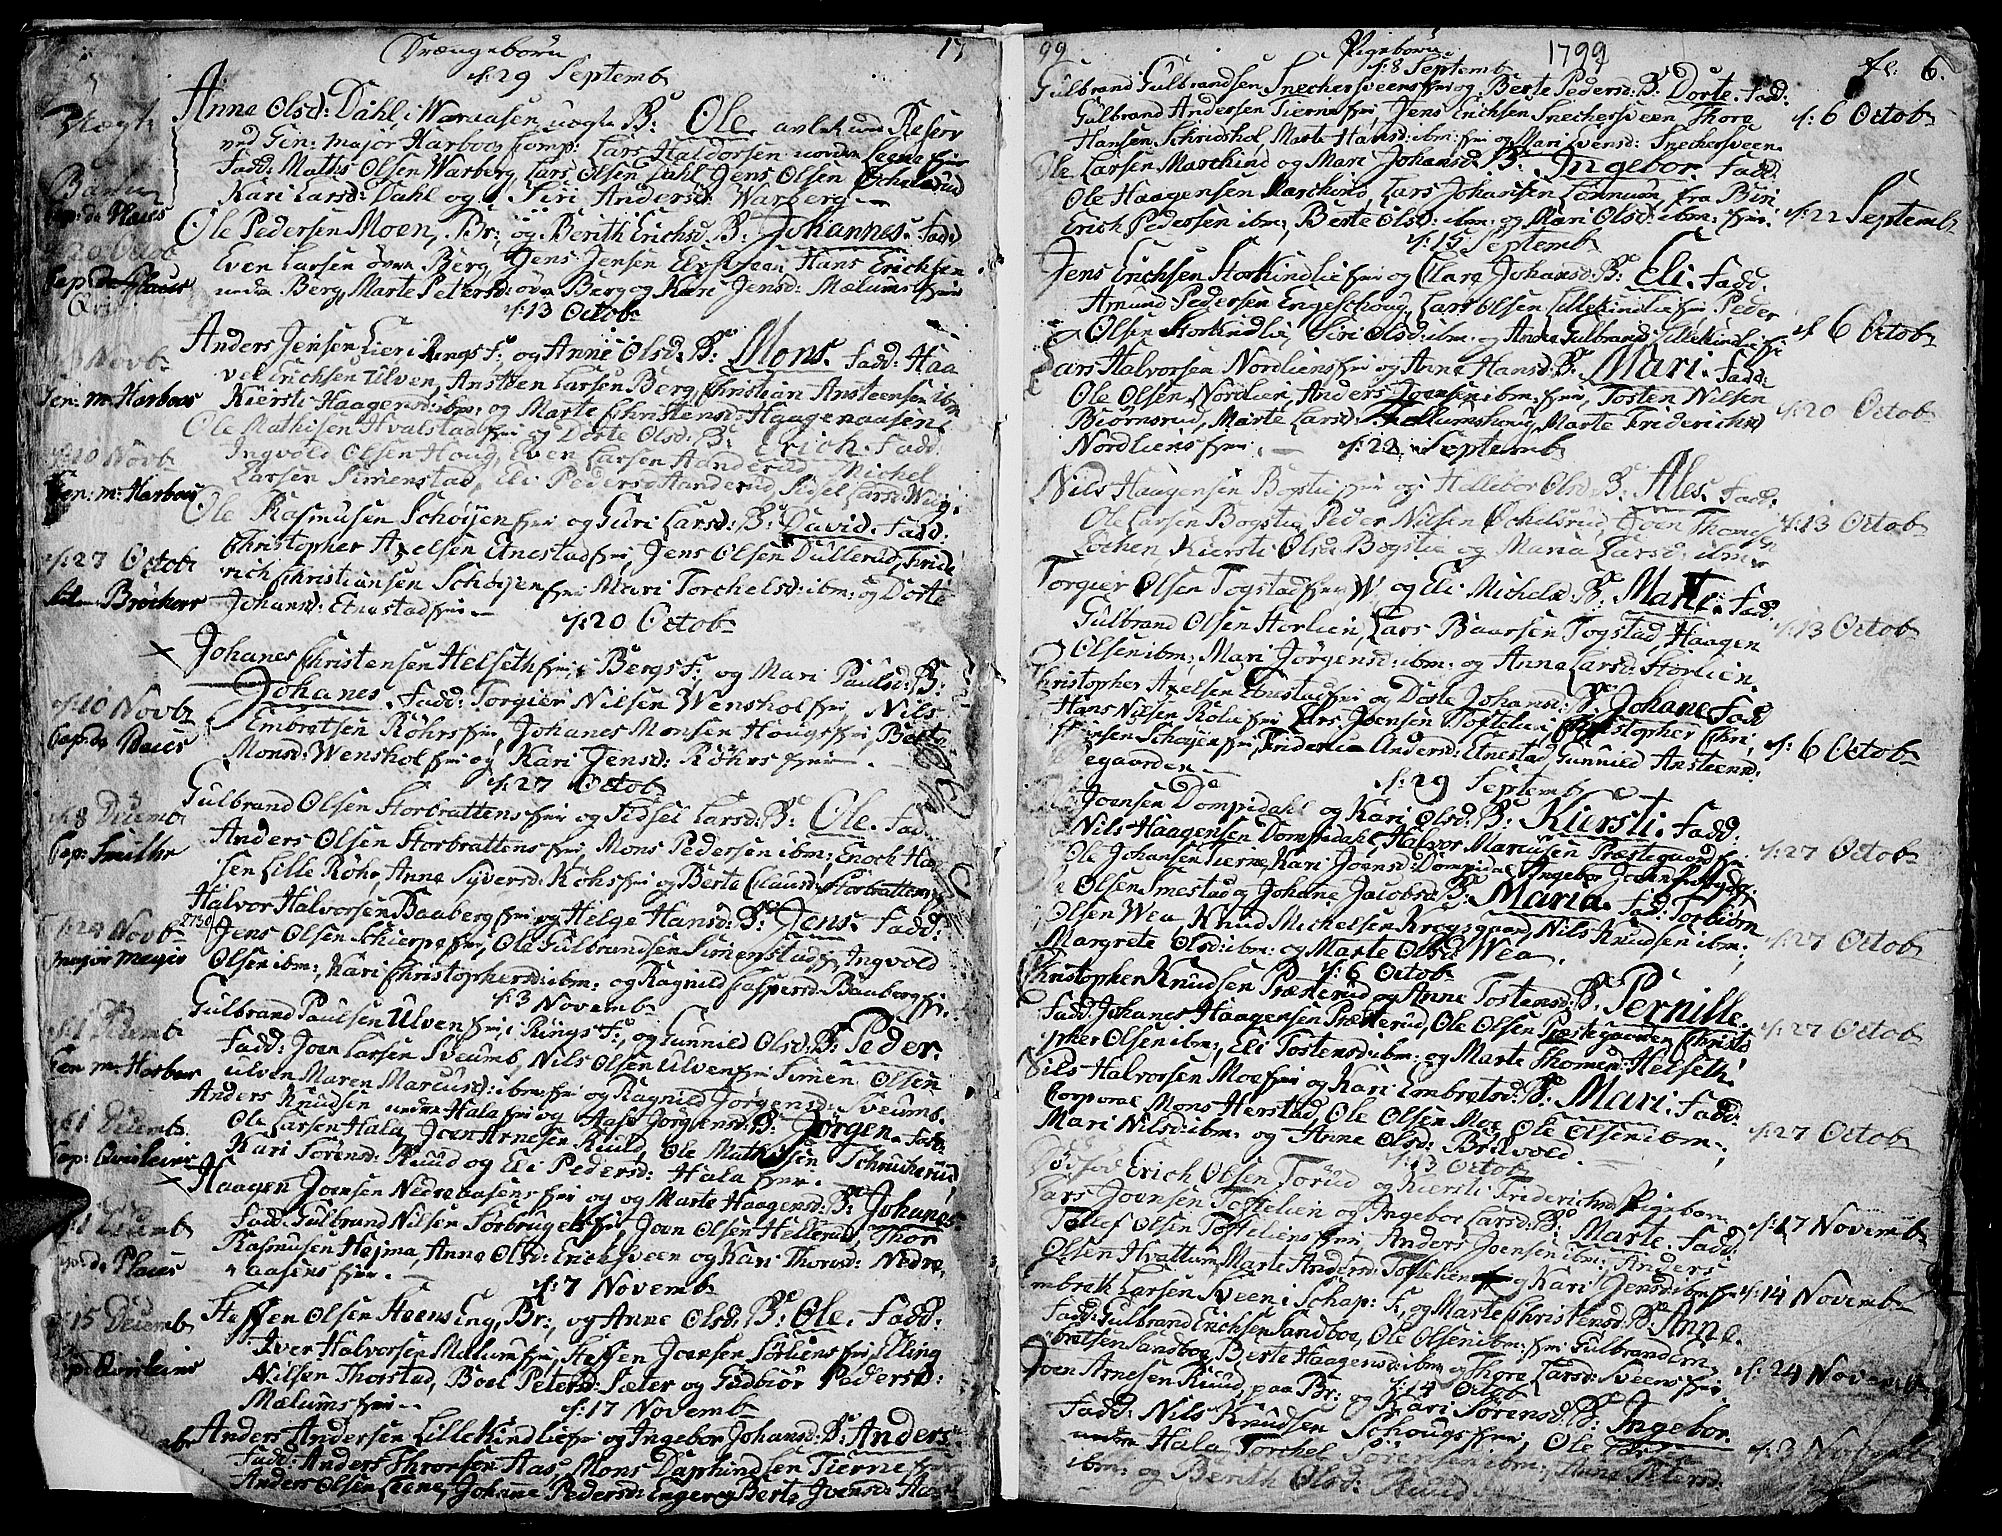 Drængebørn 17
d: 29 Septemb
Anne Olsd: Dahl, i Wardaasen, uægte B: Ole avlet ved Reserv
ved Gen: major Harboes Comp: Lars Haldorsen nordre
Fadd: Mathis Olsen Warberg, Lars Olsen Dahl, Jens Olsen Ochelsrud
Kari Larsd: Dahl og Siri Andersd: Warberg
Ole Pedersen Moen, Br:, og Berith Erichsd: B: Johannes. Fadd:
Even Larsen øvre Berg, Jens Jensen Hans Erichsen
nedre Berg, Marte Petersd: øvre Berg og Kari Jensd: Mælums
d: 13 Octob
Anders Jensen Lier i Rings F: og Anne Olsd: B: Mons. Fadd: Haa
vel Erichsen Ulven, Ansteen Larsen Berg, Christian Ansteensen ibm
Kiersti Haagensd: ibm: og Marte Christensd: Haagenaasen.
Ole Mathisen Hvalstad og Dorte Olsd: B: Erich. Fadd:
Ingvold Olsen Houg, Even Larsen Handerud, Michel
Larsen Simenstad, Eli Pedersd: Handerud, Sidsel Larsd:
Ole Rasmusen Schøyen og Guri Larsd: B: David. Fadd:
Christopher Axelsen Etnestad, Jens Olsen Dullerud, Fride
rich Christiansen Schøyen, Mari Torchelsd: ibm: og Dorte
Johansd: Etnestad
d: 20 Octob
Johanes Christensen Helseth i Bergs F:, og Mari Paulsd: B:
Johanes. Fadd: Torgier Nilsen Wenshol, Nils
Embretsen Röhrs, Johanes Monsen Hougs, Berte
Monsd: Wenshol og Kari Jensd: Röhrs
d: 27 Octob
Gulbrand Olsen Storbrattens og Sidsel Larsd: B: Ole. Fadd:
Anders Olsen Storbrattens, Mons Pedersen ibm:, Enoch Han
sen Lille Röhr, Anne Syversd: Röhs og Berte Clausd: Storbratten
Halvor Halvorsen Baaberg og Helge Hansd: B: Jens. Fadd:
Jens Olsen Schierpe, Ole Gulbrandsen Simenstad, Ingvold
Olsen ibm:, Kari Christophersd: ibm: og Ragnild Caspersd: Baaberg
d: 3 Novemb
Gulbrand Paulsen Ulven i Rings F:, og Gunnild Olsd: B: Peder.
Fadd: Joen Larsen Sveumb, Nils Olsen Ulven, Simen Olsen
Ulven, Maren Marcusd: ibm: og Ragnild Jørgensd: Sveumb
Anders Knudsen nedre Hala og Aase Jørgensd: B: Jørgen. Fadd:
Ole Larsen Hala, Joen Arnesen Ruud, Ole Mathisen
Kari Sörensd: Ruud og Eli Pedersd: Hala
Haagen Joensen Nedreaasens og Marte Haagensd: B: Johanes
Fadd: Gulbrand Nilsen Sörbrugets, Joen Olsen Hellerud, Thor
Rasmusen Hejma, Anne Olsd: Erichsveen og Kari Thorsd: Nedre
aasens
d: 7 Novemb
Steffen Olsen Steens Eng, Br:, og Anne Olsd: B: Ole. Fadd:
Iver Halvorsen Mælum, Steffen Joensen Sörliens, Elling
Nilsen Thorstad, Boel Petersd: Sæter og Gudbiör Pedersd:
Mælums
d: 17 Novemb
Anders Andersen Lille Kindlie og Ingebor Johansd: B: Anders.
Fadd: Anders Thronsen Aas, Mons Daphindsen Tierne
Anders Olsen Leene, Johane Pedersd: Enger og Berte Joensd:
Uægte
Barn
Cap: de Plaues
d: 20 Octob
Cap: de Plaues
Novb
Gen: m: Harboes
d: 10 Novb
Gen: m: Harboes
d: 27 Octob
Bröchers
d: 10 Novb
Cap: de Plaues
d: 8 Decemb
Cap: Smiths
d: 24 Novb
major Meyer
d: 1 Decemb
Gen: m: Harboes
d: 1 Decemb
Cap: Qvisleins
d: 1 Decemb
Cap: de Plaues
d: 15 Decemb
Cap: Qvisleins
99 Pigebørn 1799 fl: 6.
d: 8 Septemb
Gulbrand Gulbrandsen Snechersveens og Berte Pedersd: B: Dorte. Fadd:
Gulbrand Andersen Tierne, Jens Erichsen Snechersveen, Thore
Hansen Schridshol, Marte Hansd: ibm: og Mari Evensd: Snechersveen
d: 6 Octob
Ole Larsen Marchind og Mari Johansd: B: Ingebor. Fadd:
Ole Haagensen Marchind, Lars Johansen Lönnum, fra Biri
Erich Pedersen ibm:, Berte Olsd: ibm: og Mari Olsd: ibm:
d: 22 Septemb
d: 15 Septemb
Jens Erichsen Storkindlie og Clara Johansd: B: Eli. Fadd:
Amund Pedersen Engeschoug, Lars Olsen Lillekindlie, Peder
Olsen Storkindlie, Siri Olsd: ibm: og Anne Gulbrandsd: Lillekindlie
d: 6 Octob
Lars Halvorsen Nordliens og Anne Hansd: B: Mari. Fadd:
Ole Olsen Nordlien, Anders Joensen ibm:, Tosten Nilsen
Biørnsrud, Marte Larsd: Marte Friderichsd
Nordliens
d: 20 Octob
d: 22 Septemb
Nils Haagensen Bogstie og Hellebor Olsd: B: Ales. Fadd:
Ole Larsen Bogstie, Peder Nilsen Ochelsrud, Even Thomesen
Lochen, Kiersti Olsd: Bogstie og Maria Larsd: ibm
d: 13 Octob
Torgier Olsen Togstad og Eli Michelsd: B: Marte. Fadd:
Gulbrand Olsen Horlien, Lars Baarsen Togstad, Haagen
Olsen ibm:, Mari Jörgensd: ibm: og Anne Larsd: Horlien.
d: 13 Octob
Christopher Axelsen Etnestad og Dorte Johansd: B: Johane. Fadd:
Hans Nilsen Rolie, Lars Joensen Toftelien, Christopher Chri
stiansen Schøyen, Friderica Andersd: Etnestad, Gunnild Ansteensd:
egaarden
d: 6 Octob
d: 29 Septemb
Joensen Dompsdahl og Kari Olsd: B: Kiersti. Fadd:
Nils Haagensen Dompsdahl, Halvor Marcusen Præstegaard
Ole Johansen Tierne, Kari Joensd: Dompsdal, Ingebor Joensd:
d: 27 Octob
Olsen Smestad og Johane Jacobsd: B: Maria. Fadd: Torbiörn
Olsen Wea, Knud Michelsen Krogsgaard, Nils Knudsen ibm:,
Margrete Olsd: ibm: og Marte Olsd: Wea.
d: 27 Octob
d: 6 Octob
Christopher Knudsen Præsterud og Anne Tostensd: B: Pernille.
Fadd: Johanes Haagensen Præsterud, Ole Olsen Præstegaarden, Christo
pher Olsen ibm:, Eli Tostensd: ibm: og Marte Thomesd: Helseth.
d: 27 Octob
Nils Halvorsen Moe og Kari Embretsd: B: Mari. Fadd:
Corporal Mons Herstad, Ole Olsen Moe, Ole Olsen ibm:,
Mari Nilsd: ibm: og Anne Olsd: Bridvold.
d: 27 Octob
d: 13 Octob
Erich Olsen Torud og Kiersti Friderichsd: Pigebarn
Lars Joensen Toftelien og Ingebor Larsd: B: Marte. Fadd:
Tollef Olsen Tofteliens, Anders Joensen ibm:, Anders
Olsen Hvattum, Marte Andersd: Toftelien og Kari Jensd: ibm
d: 17 Novemb
Embreth Larsen Sveen i Schap: F, og Marte Christensd: B: Anne.
Fadd: Gulbrand Erichsen Sandboe, Ole Olsen ibm:, Gulbrand Em
bretsen Sandboe, Berte Haagensd: ibm: og Thore Larsd: Sveens
d: 14 Novemb
d: 14 Octob
Joen Arnesen Ruud, paa Br: og Kari Sörensd: B: Ingebor.
Fadd: Nils Knudsen Schougs, Ole Larsen
nedre Hala, Torchel Sörensen ibm:, Anne Petersd:
ibm: og Berith Olsd: Ruud
d: 24 Novemb
d: 3 Novemb